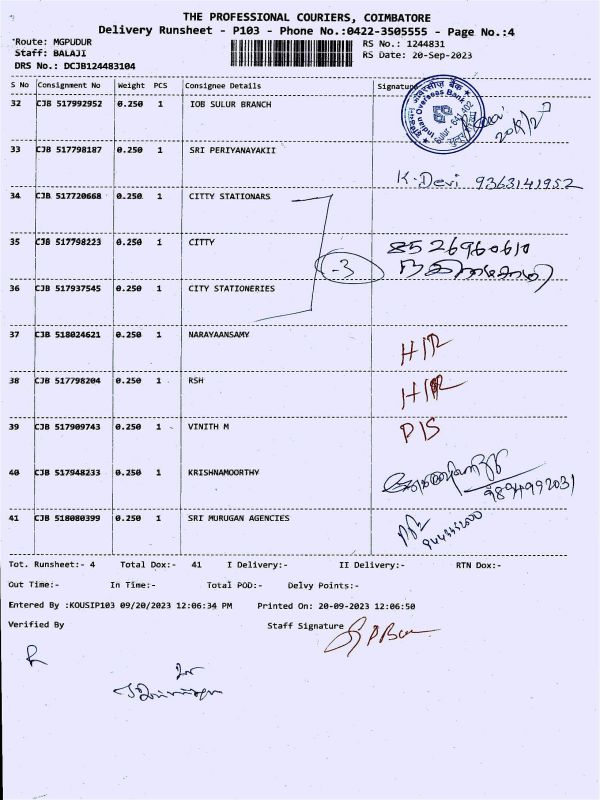 THE PROFESSIONAL COURIERS, COIMBATORE
Delivery Runsheet - P103 - Phone No.:0422-3505555 - Page No.:4
Route: MGPUDUR
Staff: BALAJI
DRS No.: DCJB124483104
RS No.: 1244831
RS Date: 20-Sep-2023
S No Consignment No Weight PCS Consignee Details Signature
32 CJB 517992952 0.250 1 IOB SULUR BRANCH
Indian Overseas Bank
33 CJB 517798187 0.250 1 SRI PERIYANAYAKII
K. Devi 9363141952
34 CJB 517720668 0.250 1 CITTY STATIONARS
35 CJB 517798223 0.250 1 CITTY 8526960610
-3
36 CJB 517937545 0.250 1 CITY STATIONERIES
37 CJB 518024621 0.250 1 NARAYAANSAMY
38 CJB 517798204 0.250 1 RSH
39 CJB 517909743 0.250 1 VINITH M
40 CJB 517948233 0.250 1 KRISHNAMOORTHY
9894992031
41 CJB 518080399 0.250 1 SRI MURUGAN AGENCIES
Tot. Runsheet:- 4 Total Dox:- 41 I Delivery:- II Delivery:- RTN Dox:-
Out Time:- In Time:- Total POD:- Delvy Points:-
Entered By :KOUSIP103 09/20/2023 12:06:34 PM Printed On: 20-09-2023 12:06:50
Verified By Staff Signature